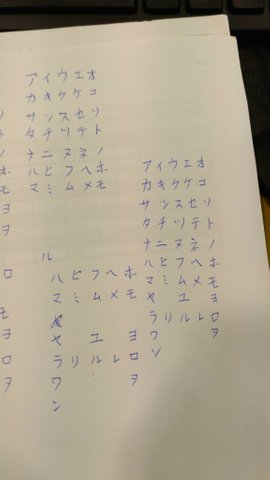 ア イ ウ エ オ
カ キ ク ケ コ
サ シ ス セ ソ
タ チ ツ テ ト
ナ ニ ヌ ネ ノ
ハ ヒ フ ヘ ホ
マ ミ ム メ モ
ル
ハ ヒ フ ヘ ホ
マ ミ ム メ モ
ヤ ユ ヨ
ラ リ ル レ ロ
ワ ヲ
ン
ア イ ウ エ オ
カ キ ク ケ コ
サ シ ス セ ソ
タ チ ツ テ ト
ナ ニ ヌ ネ ノ
ハ ヒ フ ヘ ホ
マ ミ ム メ モ
ヤ ユ ヨ
ラ リ ル レ ロ
ワ ヲ
ン